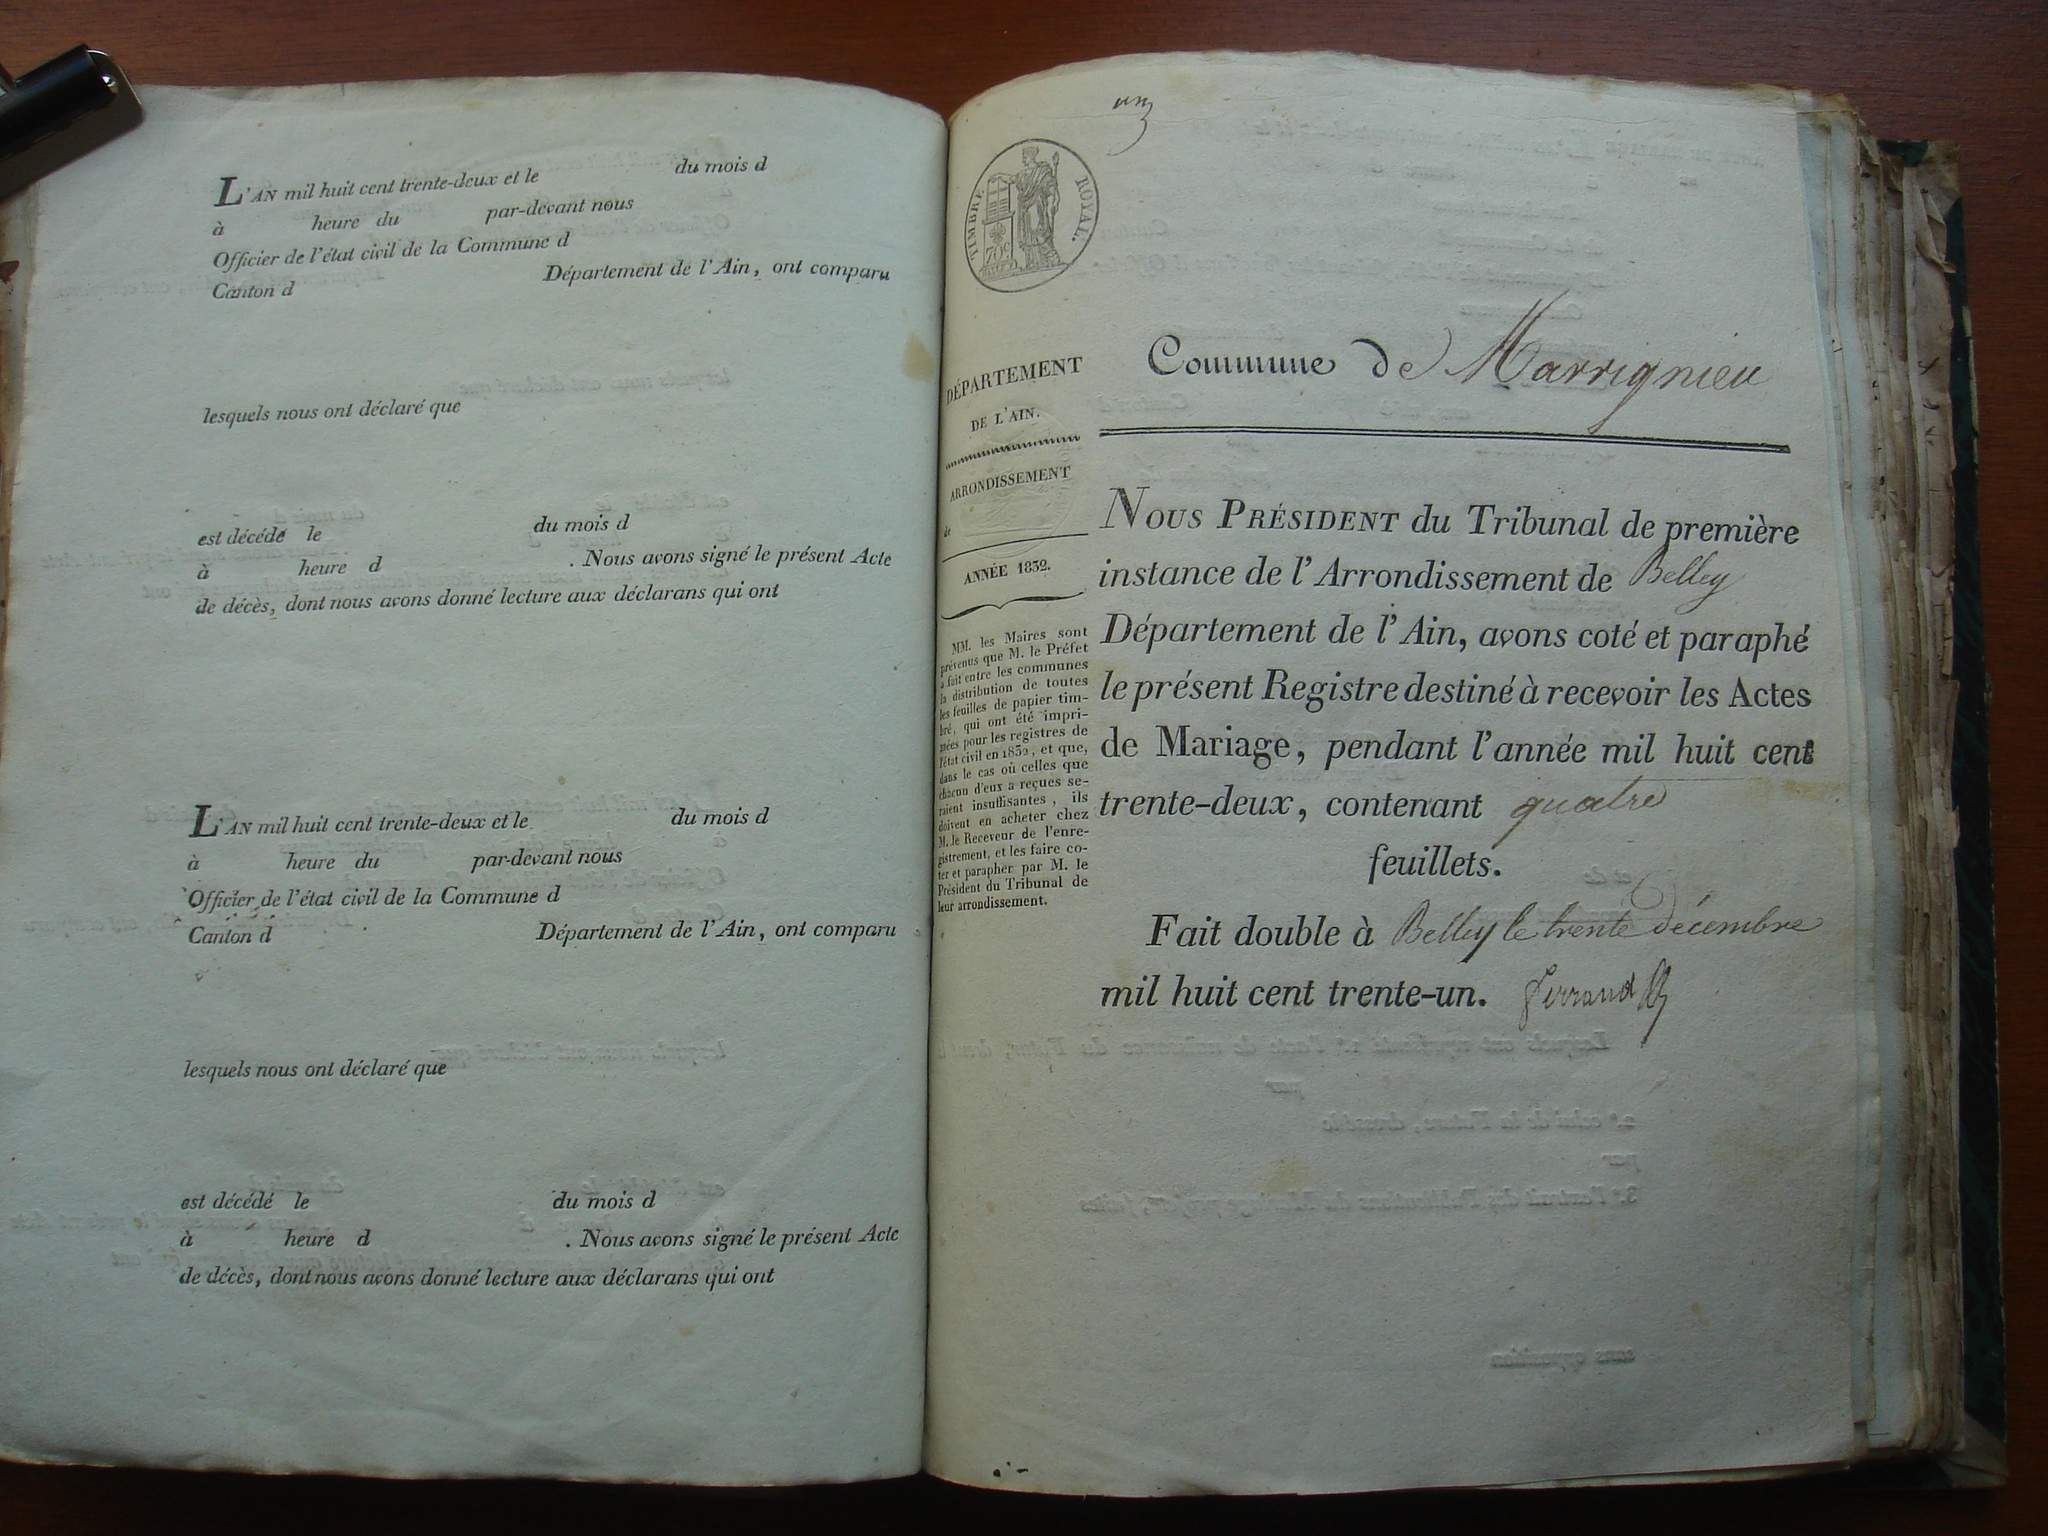 L'AN mil huit cent trente-deux et le du mois d
à heure du par-devant nous
Officier de l'état civil de la Commune d
Canton d Département de l'Ain, ont comparu
lesquels nous ont déclaré que
est décédé le du mois d
à heure d . Nous avons signé le présent Acte
de décès, dont nous avons donné lecture aux déclarans qui ont
L'AN mil huit cent trente-deux et le du mois d
à heure du par-devant nous
Officier de l'état civil de la Commune d
Canton d Département de l'Ain, ont comparu
lesquels nous ont déclaré que
est décédé le du mois d
à heure d . Nous avons signé le présent Acte
de décès, dont nous avons donné lecture aux déclarans qui ont
un
TIMBRE ROYAL.
70c
DÉPARTEMENT
DE L'AIN.
ARRONDISSEMENT
de
ANNÉE 1832.
MM. les Maires sont
prévenus que M. le Préfet
a fait entre les communes
la distribution de toutes
les feuilles de papier tim-
bré, qui ont été impri-
mées pour les registres de
l'état civil en 1832, et que,
dans le cas où celles que
chacun d'eux a reçues se-
raient insuffisantes, ils
doivent en acheter chez
M. le Receveur de l'enre-
gistrement, et les faire co-
ter et parapher par M. le
Président du Tribunal de
leur arrondissement.
Commune de Marrignieu
NOUS PRÉSIDENT du Tribunal de première
instance de l'Arrondissement de Belley
Département de l'Ain, avons coté et paraphé
le présent Registre destiné à recevoir les Actes
de Mariage, pendant l'année mil huit cent
trente-deux, contenant quatre
feuillets.
Fait double à Belley le trente décembre
mil huit cent trente-un. Ferrand